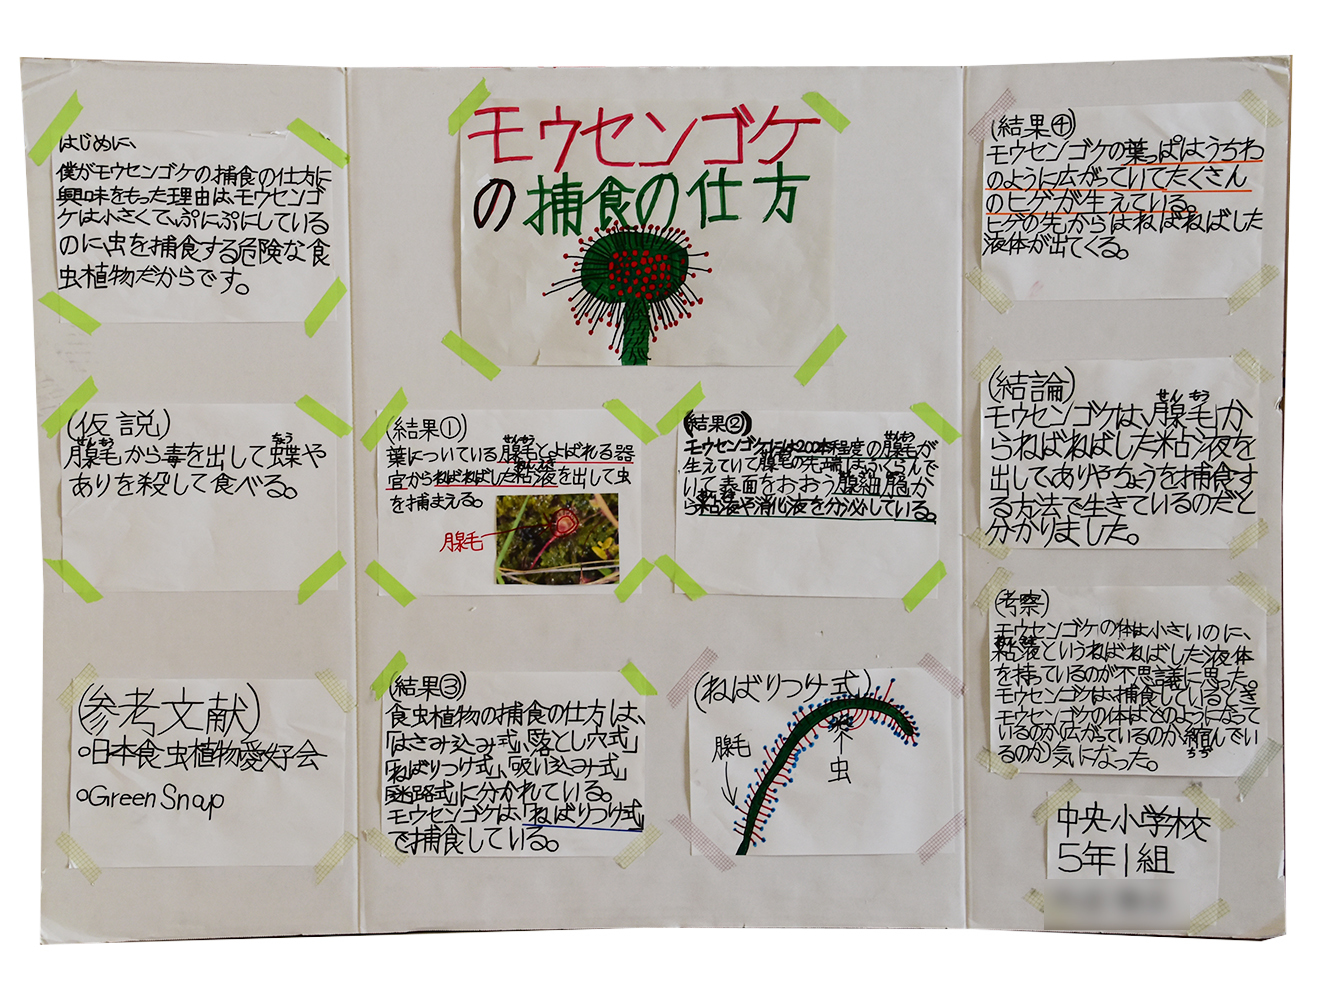 モウセンゴケ
の捕食の仕方
はじめに、
僕がモウセンゴケの捕食の仕方に
興味をもった理由は、モウセンゴ
ケは小さくて、ぷにぷにしている
のに、虫を捕食する危険な食
虫植物だからです。
(仮説)
せんもう
ちょう
腺毛から毒を出して蝶や
ありを殺して食べる。
(参考文献)
○日本食虫植物愛好会
○Green Snap
(結果①)
せんもう
葉についている腺毛とよばれる器
官からねばねばした粘液を出して虫
を捕まえる。
腺毛
(結果②)
せんもう
モウセンゴケには200本程度の腺毛が
生えていて腺毛の先端はふくらんで
いて表面をおおう腺細胞か
ら粘液や消化液を分泌している。
(結果③)
食虫植物の捕食の仕方は、
「はさみ込み式」、「落とし穴式」
「ねばりつけ式」、「吸い込み式」
「迷路式」に分かれている。
モウセンゴケは、「ねばりつけ式」
で捕食している。
(ねばりつけ式)
腺毛
虫
(結果④)
モウセンゴケの葉っぱはうちわ
のように広がっていてたくさん
のヒゲが生えている。
ヒゲの先からはねばねばした
液体が出てくる。
(結論)
せんもう
モウセンゴケは、腺毛か
らねばねばした粘液を
出して、ありやちょうを捕食す
る方法で生きているのだと
分かりました。
(考察)
モウセンゴケの体は小さいのに、
粘液というねばねばした液体
を持っているのが不思議に思った。
モウセンゴケは、捕食しているとき
モウセンゴケの体はどのようになって
いるのか広がっているのか縮んでい
るのか気になった。
中央小学校
5年1組